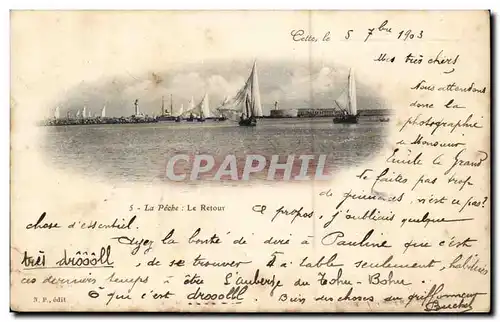 Cette, le 5 7bre 1903
Mes très chers
Nous attendons
donc la
photographie
de Monsieur
Emile le Grand
Ne faites pas trop de
grimaces, n'est ce pas?
CPHPAF
CPHPAF
5 - La Pêche : Le Retour
A propos, j'oubliais quelque
chose d'essentiel.
Ayez la bonté de dire à Pauline que c'est
très drôôôll, de se trouver à table seulement, habituées
ces derniers temps à être à l'auberge du Tohu-Bohu
ô que c'est drooolll. Bien des choses du griffonneur
N. P., édit